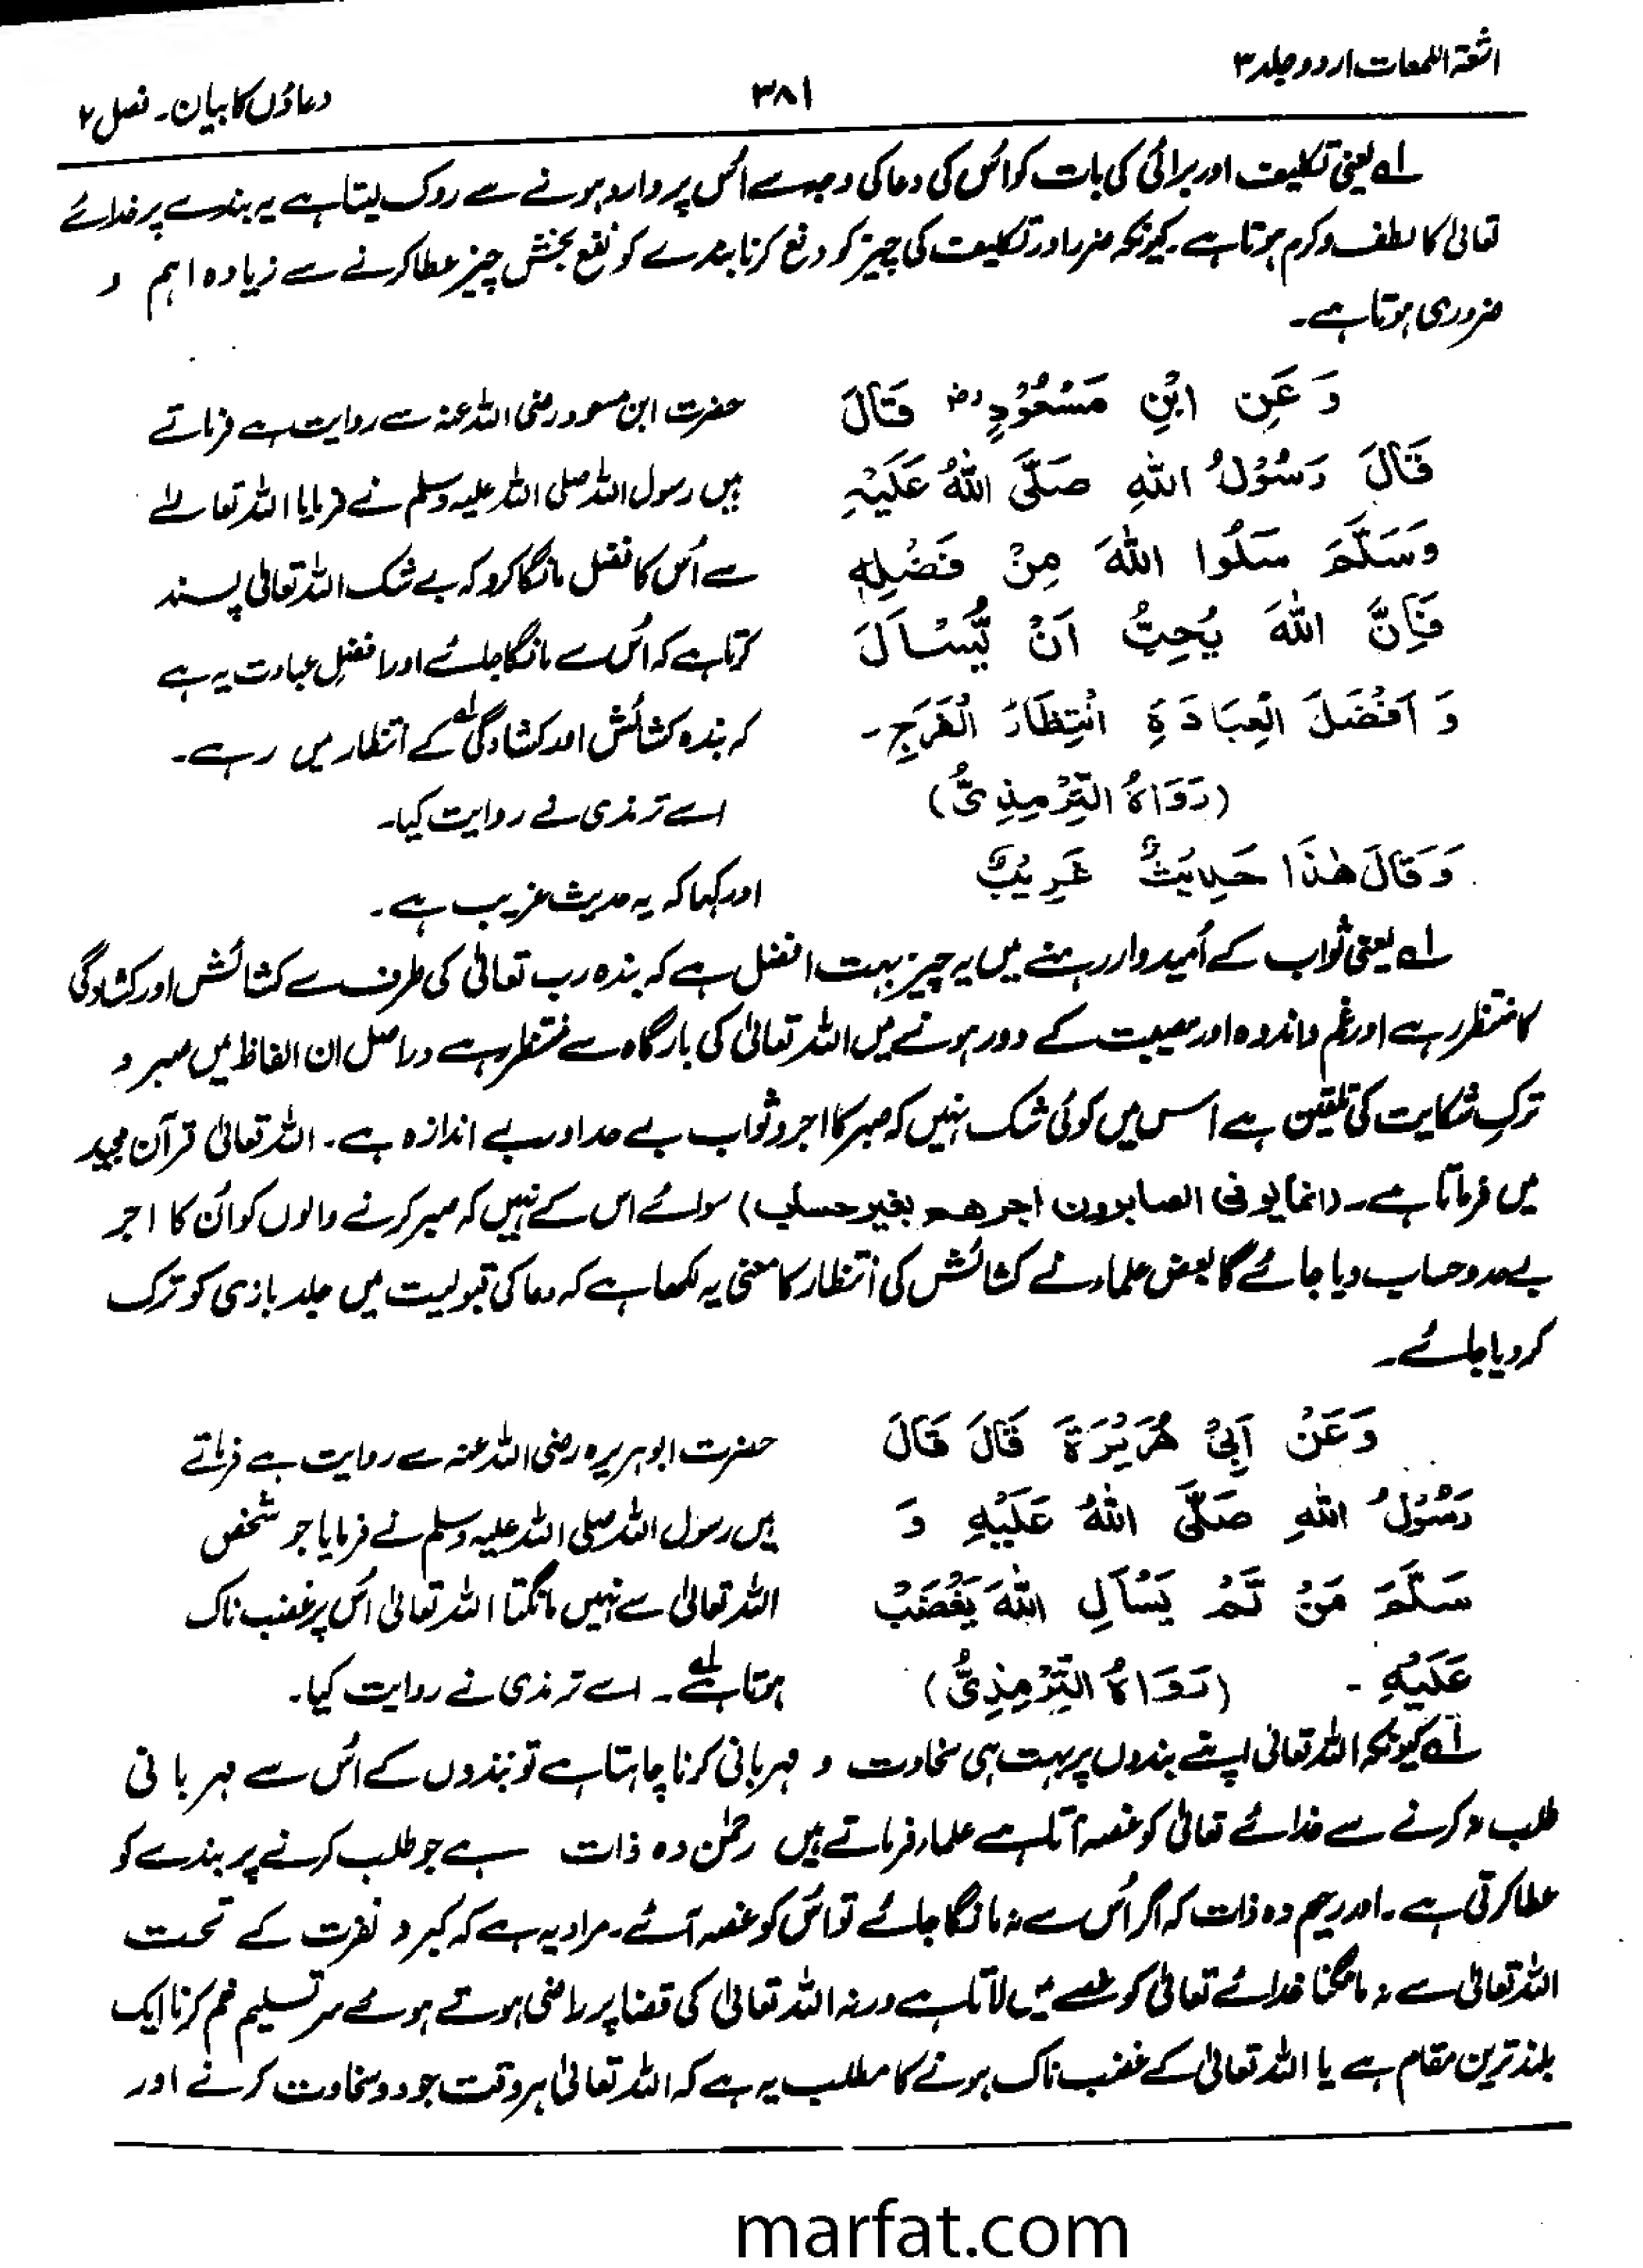 اشعۃ اللمعات اردو جلد ۳
۳۸۱
دعاؤں کا بیان۔ فصل ۲
لہ یعنی تکلیف اور برائی کی بات کو اُس کی دعا کی وجہ سے اُس پر وارد ہونے سے روک لیتا ہے یہ بندے پر خدائے
تعالیٰ کا لطف و کرم ہوتا ہے۔ کیونکہ ضرر اور تکلیف کی چیز کو دفع کرنا بندے کو نفع بخش چیز عطا کرنے سے زیادہ اہم و
ضروری ہوتا ہے۔
وَ عَنِ ابْنِ مَسْعُوْدٍ رض قَالَ
قَالَ رَسُوْلُ اللهِ صَلَّى اللهُ عَلَيْهِ
وَسَلَّمَ سَلُوا اللهَ مِنْ فَضْلِهٖ
فَاِنَّ اللهَ يُحِبُّ اَنْ يُّسْاَلَ
وَ اَفْضَلَ الْعِبَادَةِ انْتِظَارُ الْفَرَجِ۔
(رَوَاهُ التِّرْمِذِىُّ)
وَ قَالَ هٰذَا حَدِيْثٌ غَرِيْبٌ
حضرت ابن مسعود رضی اللہ عنہ سے روایت ہے فرماتے
ہیں رسول اللہ صلی اللہ علیہ وسلم نے فرمایا اللہ تعالےٰ
سے اُس کا فضل مانگا کرو کہ بے شک اللہ تعالیٰ پسند
کرتا ہے کہ اُس سے مانگا جائے اور افضلِ عبادت یہ ہے
کہ بندہ کشائش اور کشادگی لہ کے انتظار میں رہے۔
اسے ترمذی نے روایت کیا۔
اور کہا کہ یہ حدیث غریب ہے۔
لہ یعنی ثواب کے اُمیدوار رہنے میں یہ چیز بہت افضل ہے کہ بندہ رب تعالیٰ کی طرف سے کشائش اور کشادگی
کا منتظر رہے اور غم و اندوہ اور مصیبت کے دور ہونے میں اللہ تعالیٰ کی بارگاہ سے منتظر رہے دراصل ان الفاظ میں صبر و
ترکِ شکایت کی تلقین ہے اس میں کوئی شک نہیں کہ صبر کا اجر و ثواب بے حد اور بے اندازہ ہے۔ اللہ تعالیٰ قرآن مجید
میں فرماتا ہے۔ (انما یوفی الصابرون اجرھم بغیر حساب) سوائے اس کے نہیں کہ صبر کرنے والوں کو اُن کا اجر
بے حد و حساب دیا جائے گا بعض علماء نے کشائش کی انتظار کا معنی یہ لکھا ہے کہ دعا کی قبولیت میں جلد بازی کو ترک
کر دیا جائے۔
وَ عَنْ اَبِىْ هُرَيْرَةَ قَالَ قَالَ
رَسُوْلُ اللهِ صَلَّى اللهُ عَلَيْهِ وَ
سَلَّمَ مَنْ لَّمْ يَسْاَلِ اللهَ يَغْضَبْ
عَلَيْهِ ۔ (رَوَاهُ التِّرْمِذِىُّ)
حضرت ابوہریرہ رضی اللہ عنہ سے روایت ہے فرماتے
ہیں رسول اللہ صلی اللہ علیہ وسلم نے فرمایا جو شخص
اللہ تعالیٰ سے نہیں مانگتا اللہ تعالیٰ اُس پر غضب ناک
ہوتا ہے لہ۔ اسے ترمذی نے روایت کیا۔
لہ کیونکہ اللہ تعالیٰ اپنے بندوں پر بہت ہی سخاوت و مہربانی کرنا چاہتا ہے تو بندوں کے اُس سے مہربانی
طلب نہ کرنے سے خدائے تعالیٰ کو غصہ آتا ہے علماء فرماتے ہیں رحمٰن وہ ذات ہے جو طلب کرنے پر بندے کو
عطا کرتی ہے۔ اور رحیم وہ ذات کہ اگر اُس سے نہ مانگا جائے تو اُس کو غصہ آئے۔ مراد یہ ہے کہ کبر و نفرت کے تحت
اللہ تعالیٰ سے نہ مانگنا خدائے تعالیٰ کو غصے میں لاتا ہے ورنہ اللہ تعالیٰ کی قضا پر راضی ہوتے ہوئے سر تسلیم خم کرنا ایک
بلند ترین مقام ہے یا اللہ تعالیٰ کے غضب ناک ہونے کا مطلب یہ ہے کہ اللہ تعالیٰ ہر وقت جود و سخاوت کرنے اور
marfat.com